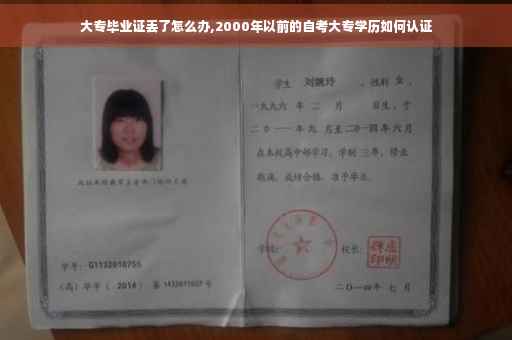 大专毕业证丢了怎么办,2000年以前的自考大专学历如何认证
学生 刘婉玲 ,性别 女 ,
一九九六 年 二 月 日生,于
二0一一 年 九 月至 二0一四 年 六 月
在本校高中部学习,学制 三 年,修业
期满,成绩合格,准予毕业。
学号: G1132010755
(高)毕字( 2014 )第 1432011027 号
学校:
校长:
二〇一四年 七 月